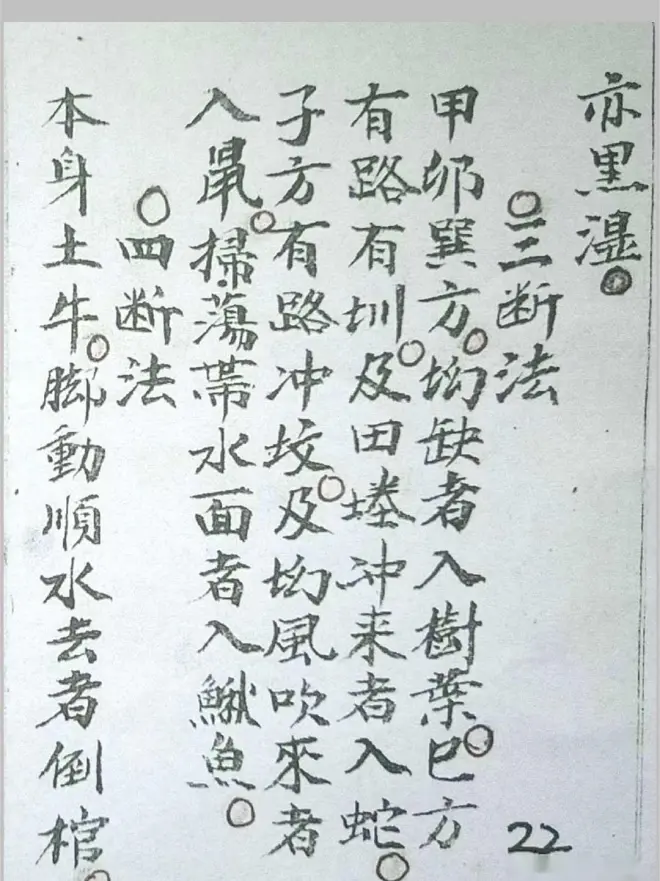 亦黑湿。
三断法
甲卯巽方。坳缺者入樹葉。巳方
有路有圳。及田塍冲来者入蛇。
子方有路冲坟。及坳風吹來者
入鼠。掃蕩帶水面者入鰍魚。
四断法
本身土牛。脚動順水去者倒棺。
22